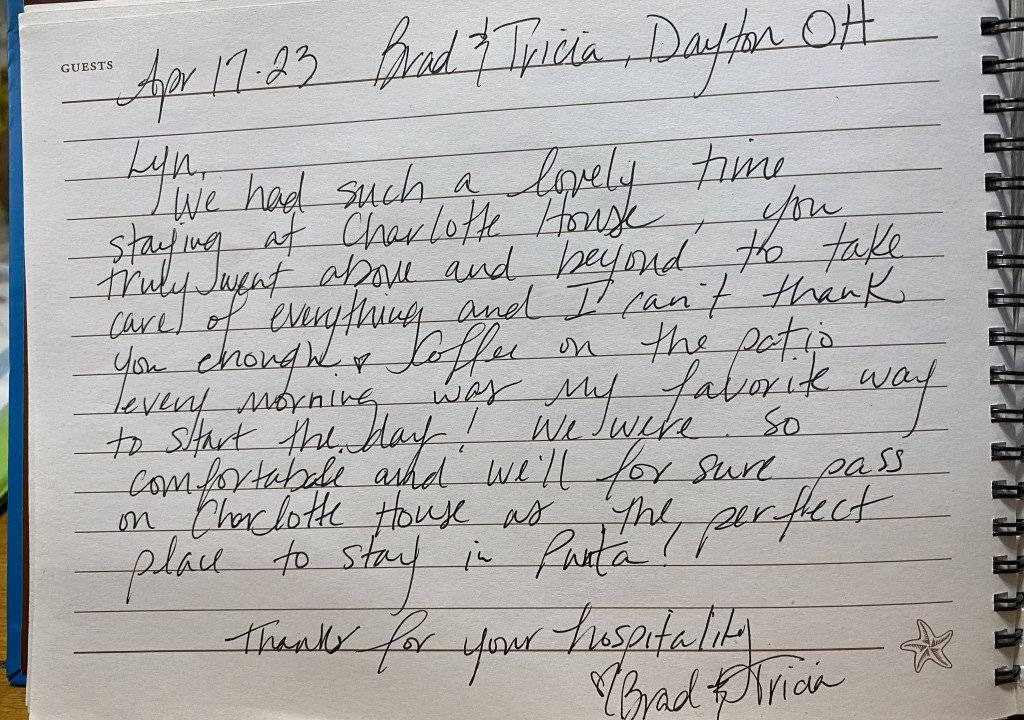 GUESTS Apr 17-23 Brad & Tricia, Dayton OH
Lyn,
We had such a lovely time
staying at Charlotte House, you
truly went above and beyond to take
care of everything and I can't thank
you enough! Coffee on the patio
every morning was my favorite way
to start the day! We were so
comfortable and we'll for sure pass
on Charlotte House as the perfect
place to stay in Punta!
Thanks for your hospitality
Brad & Tricia